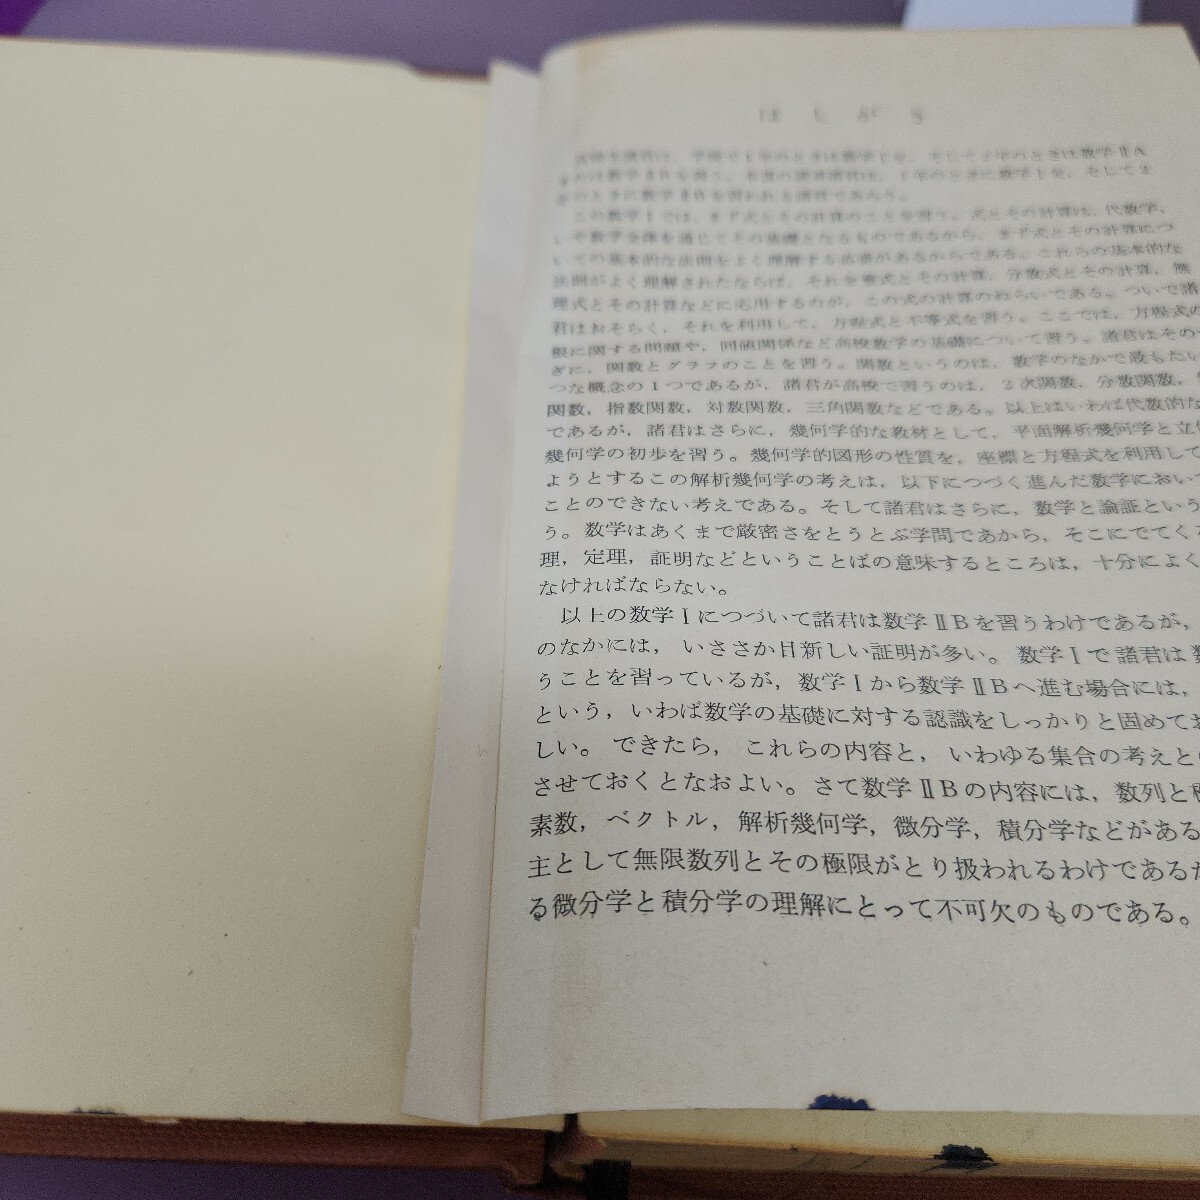 はしがき
高校生諸君は，学校で1年のときは数学Ⅰを，そして2年のときは数学ⅡA
または数学ⅡBを習う。本書の読者諸君は，1年のときに数学Ⅰを，そして2
年のときに数学ⅡBを習われる諸君であろう。
この数学Ⅰでは，まず式とその計算のことを習う。式とその計算は，代数学，
いや数学全体を通じてその基礎となるものであるから，まず式とその計算につ
いての基本的な法則をよく理解する必要があるからである。これらの基本的な
法則がよく理解されたならば，それを整式とその計算，分数式とその計算，無
理式とその計算などに応用するのが，この式の計算のねらいである。ついで諸
君はおそらく，それを利用して，方程式と不等式を習う。ここでは，方程式の
根に関する問題や，同値関係など高校数学の基礎について習う。諸君はその
ぎに，関数とグラフのことを習う。関数というのは，数学のなかで最もたい
つな概念の1つであるが，諸君が高校で習うのは，2次関数，分数関数，
関数，指数関数，対数関数，三角関数などである。以上はいわば代数的な
であるが，諸君はさらに，幾何学的な教材として，平面解析幾何学と立体
幾何学の初歩を習う。幾何学的図形の性質を，座標と方程式を利用して
ようとするこの解析幾何学の考えは，以下につづく進んだ数学において
ことのできない考えである。そして諸君はさらに，数学と論証という
う。数学はあくまで厳密さをとうとぶ学問であから，そこにでてくる
理，定理，証明などということばの意味するところは，十分によく
なければならない。
以上の数学Ⅰにつづいて諸君は数学ⅡBを習うわけであるが，
のなかには，いささか目新しい証明が多い。数学Ⅰで諸君は数
うことを習っているが，数学Ⅰから数学ⅡBへ進む場合には，
という，いわば数学の基礎に対する認識をしっかりと固めてお
しい。できたら，これらの内容と，いわゆる集合の考えと
させておくとなおよい。さて数学ⅡBの内容には，数列と
素数，ベクトル，解析幾何学，微分学，積分学などがある
主として無限数列とその極限がとり扱われるわけであるが
る微分学と積分学の理解にとって不可欠のものである。